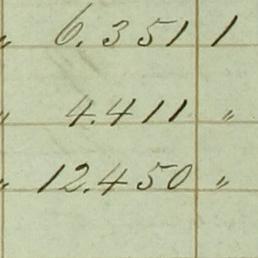 " 6.351 1
" 4.411 "
" 12.450 "